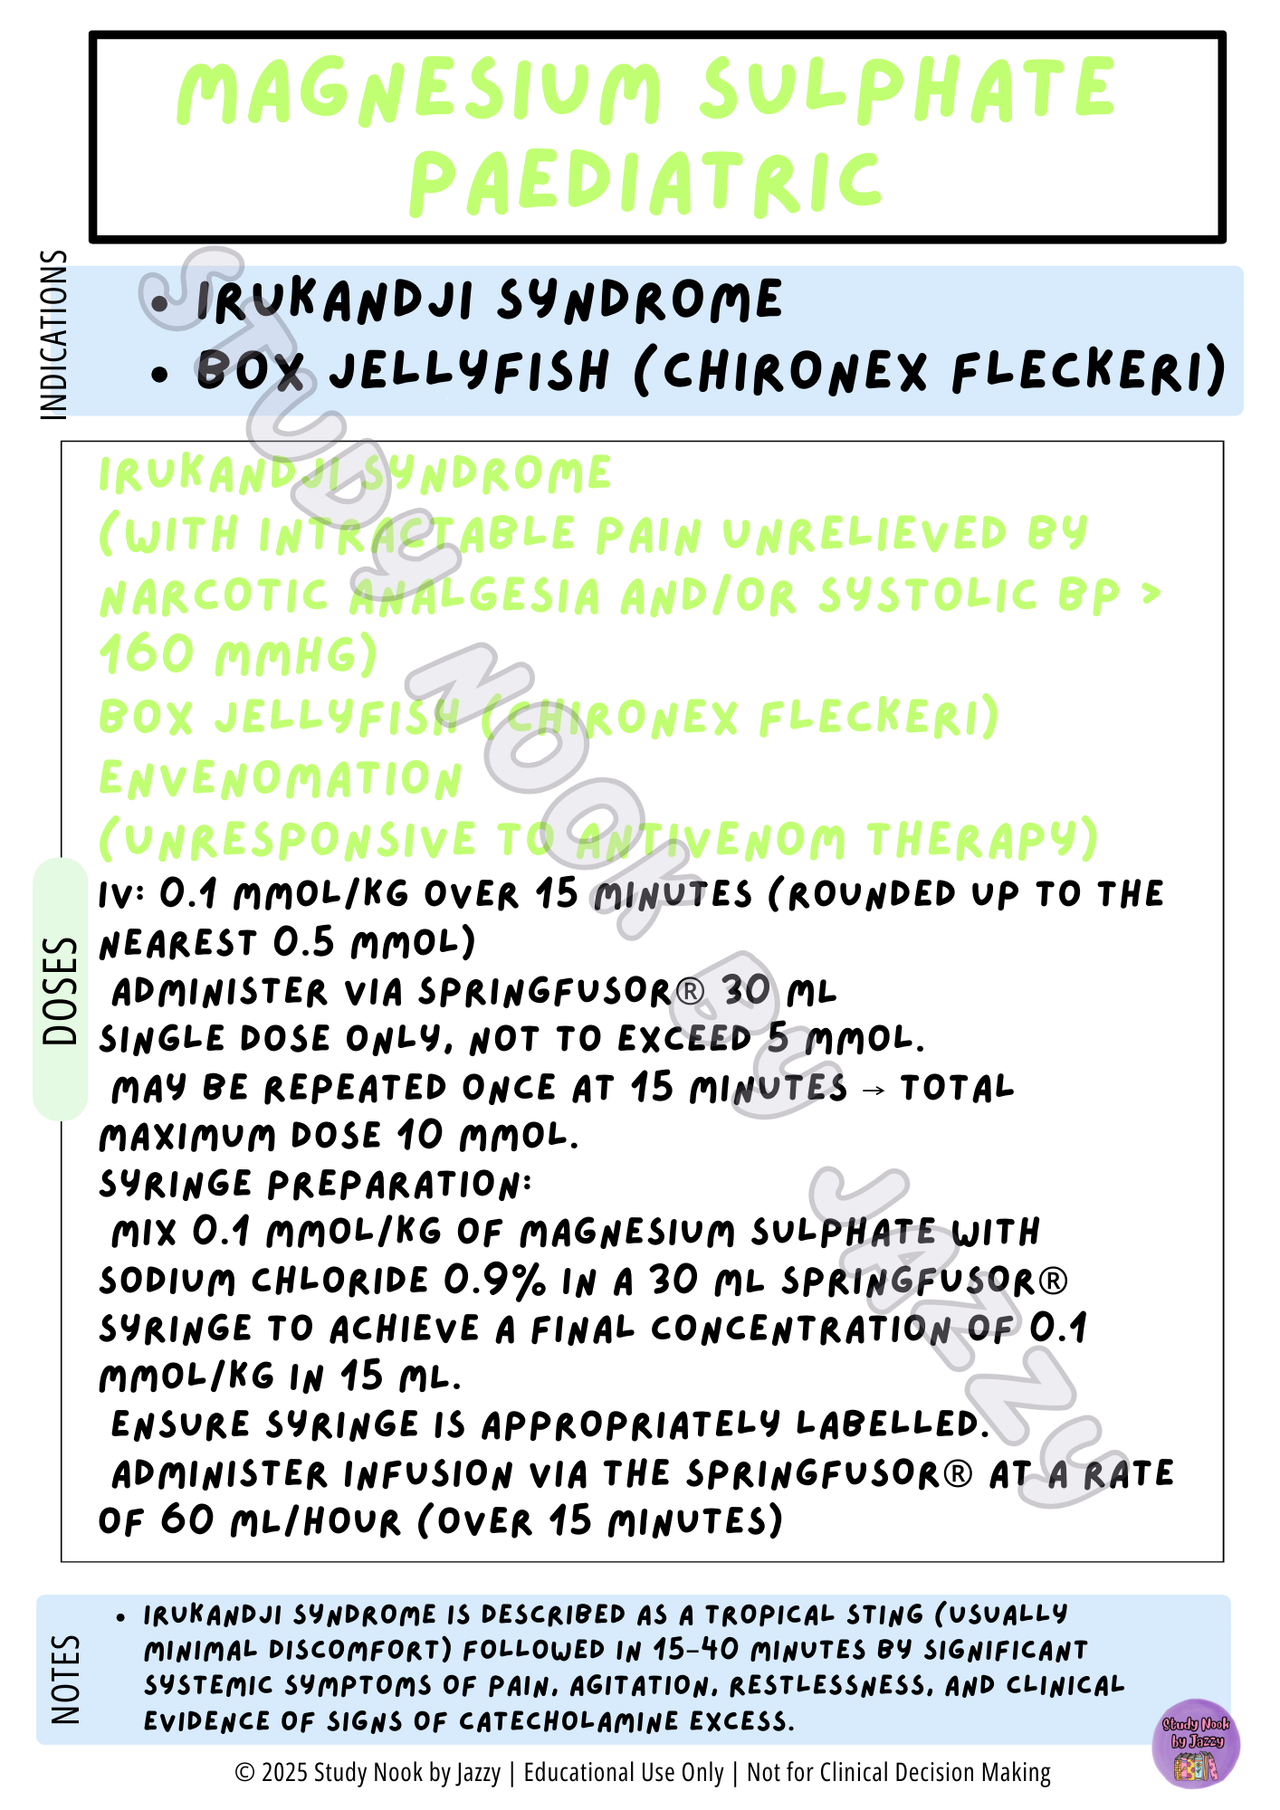 MAGNESIUM SULPHATE
PAEDIATRIC
INDICATIONS
• IRUKANDJI SYNDROME
• BOX JELLYFISH (CHIRONEX FLECKERI)
IRUKANDJI SYNDROME
(WITH INTRACTABLE PAIN UNRELIEVED BY
NARCOTIC ANALGESIA AND/OR SYSTOLIC BP >
160 MMHG)
BOX JELLYFISH (CHIRONEX FLECKERI)
ENVENOMATION
(UNRESPONSIVE TO ANTIVENOM THERAPY)
DOSES
IV: 0.1 MMOL/KG OVER 15 MINUTES (ROUNDED UP TO THE
NEAREST 0.5 MMOL)
ADMINISTER VIA SPRINGFUSOR® 30 ML
SINGLE DOSE ONLY, NOT TO EXCEED 5 MMOL.
MAY BE REPEATED ONCE AT 15 MINUTES → TOTAL
MAXIMUM DOSE 10 MMOL.
SYRINGE PREPARATION:
MIX 0.1 MMOL/KG OF MAGNESIUM SULPHATE WITH
SODIUM CHLORIDE 0.9% IN A 30 ML SPRINGFUSOR®
SYRINGE TO ACHIEVE A FINAL CONCENTRATION OF 0.1
MMOL/KG IN 15 ML.
ENSURE SYRINGE IS APPROPRIATELY LABELLED.
ADMINISTER INFUSION VIA THE SPRINGFUSOR® AT A RATE
OF 60 ML/HOUR (OVER 15 MINUTES)
STUDY NOOK BY JAZZY
NOTES
• IRUKANDJI SYNDROME IS DESCRIBED AS A TROPICAL STING (USUALLY
MINIMAL DISCOMFORT) FOLLOWED IN 15–40 MINUTES BY SIGNIFICANT
SYSTEMIC SYMPTOMS OF PAIN, AGITATION, RESTLESSNESS, AND CLINICAL
EVIDENCE OF SIGNS OF CATECHOLAMINE EXCESS.
Study Nook
by Jazzy
© 2025 Study Nook by Jazzy | Educational Use Only | Not for Clinical Decision Making